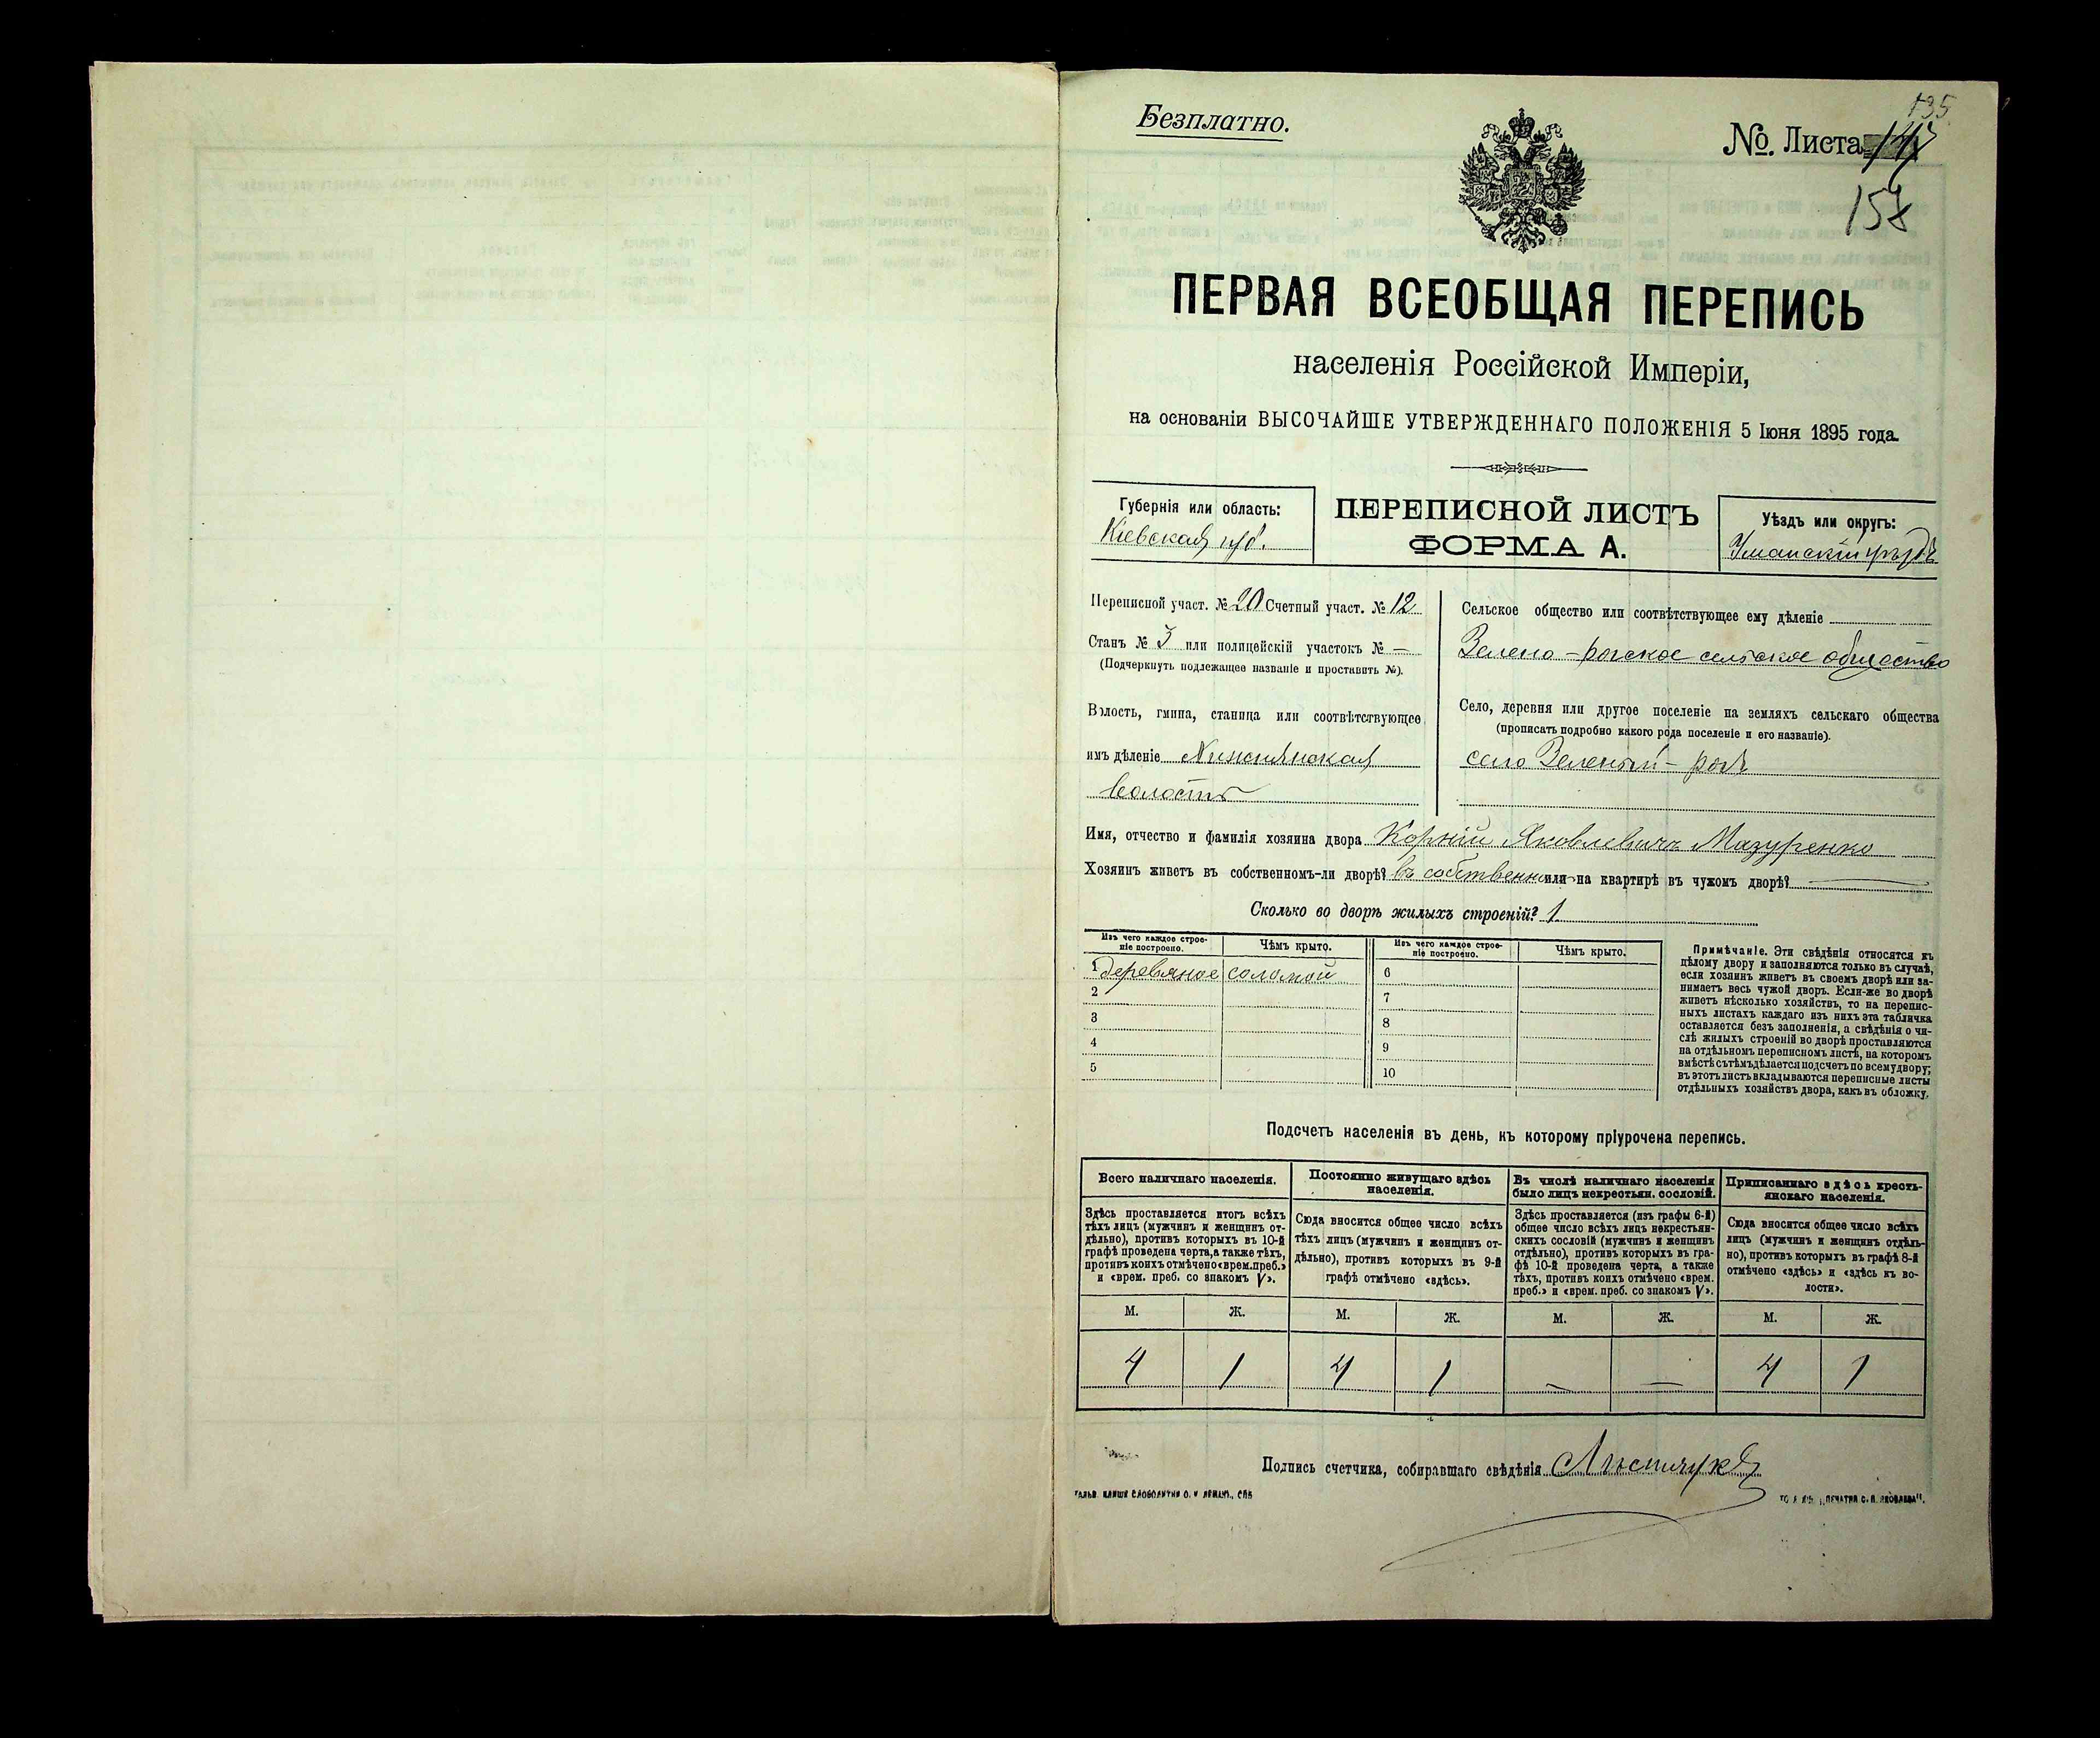 Безплатно.
135
№. Листа
158
ПЕРВАЯ ВСЕОБЩАЯ ПЕРЕПИСЬ
населенія Россійской Имперіи,
на основаніи ВЫСОЧАЙШЕ УТВЕРЖДЕННАГО ПОЛОЖЕНІЯ 5 Іюня 1895 года.
Губернія или область:
Кіевская губ.
ПЕРЕПИСНОЙ ЛИСТЪ
ФОРМА А.
Уѣздъ или округъ:
Уманскій уѣздъ
Переписной участ. № 20 Счетный участ. № 12
Станъ № 3 или полицейскій участокъ № —
(Подчеркнуть подлежащее названіе и проставить №).
Волость, гмина, станица или соотвѣтствующее
имъ дѣленіе
волость
Сельское общество или соотвѣтствующее ему дѣленіе
Зелено-рогское сельское общество
Село, деревня или другое поселеніе на земляхъ сельскаго общества
(прописать подробно какого рода поселеніе и его названіе).
село Зеленый-рогъ
Имя, отчество и фамилія хозяина двора Корній Яковлевичъ Мазуренко
Хозяинъ живетъ въ собственномъ-ли дворѣ? въ собственномъ или на квартирѣ въ чужомъ дворѣ? —
Сколько во дворѣ жилыхъ строеній? 1
Изъ чего каждое строе-
ніе построено.
Чѣмъ крыто.
Изъ чего каждое строе-
ніе построено.
Чѣмъ крыто.
1 деревяное соломой 6
2 7
3 8
4 9
5 10
Примѣчаніе. Эти свѣдѣнія относятся къ
цѣлому двору и заполняются только въ случаѣ,
если хозяинъ живетъ въ своемъ дворѣ или за-
нимаетъ весь чужой дворъ. Если-же во дворѣ
живетъ нѣсколько хозяйствъ, то на перепис-
ныхъ листахъ каждаго изъ нихъ эта табличка
оставляется безъ заполненія, а свѣдѣнія о чи-
слѣ жилыхъ строеній во дворѣ проставляются
на отдѣльномъ переписномъ листѣ, на которомъ
вмѣстѣ съ тѣмъ дѣлается подсчетъ по всему двору;
въ этотъ листъ вкладываются переписные листы
отдѣльныхъ хозяйствъ двора, какъ въ обложку.
Подсчетъ населенія въ день, къ которому пріурочена перепись.
Всего наличнаго населенія.
Здѣсь проставляется итогъ всѣхъ
тѣхъ лицъ (мужчинъ и женщинъ от-
дѣльно), противъ которыхъ въ 10-й
графѣ проведена черта, а также тѣхъ,
противъ коихъ отмѣчено «врем. преб.»
и «врем. преб. со знакомъ V».
М. Ж.
4 1
Постоянно живущаго здѣсь
населенія.
Сюда вносится общее число всѣхъ
тѣхъ лицъ (мужчинъ и женщинъ от-
дѣльно), противъ которыхъ въ 9-й
графѣ отмѣчено «здѣсь».
М. Ж.
4 1
Въ числѣ наличнаго населенія
было лицъ некрестьян. сословій.
Здѣсь проставляется (изъ графы 6-й)
общее число всѣхъ лицъ некрестьян-
скихъ сословій (мужчинъ и женщинъ
отдѣльно), противъ которыхъ въ гра-
фѣ 10-й проведена черта, а также
тѣхъ, противъ коихъ отмѣчено «врем.
преб.» и «врем. преб. со знакомъ V».
М. Ж.
— —
Приписаннаго здѣсь кресть-
янскаго населенія.
Сюда вносится общее число всѣхъ
лицъ (мужчинъ и женщинъ отдѣль-
но), противъ которыхъ въ графѣ 8-й
отмѣчено «здѣсь» и «здѣсь къ во-
лости».
М. Ж.
4 1
Подпись счетчика, собиравшаго свѣдѣнія